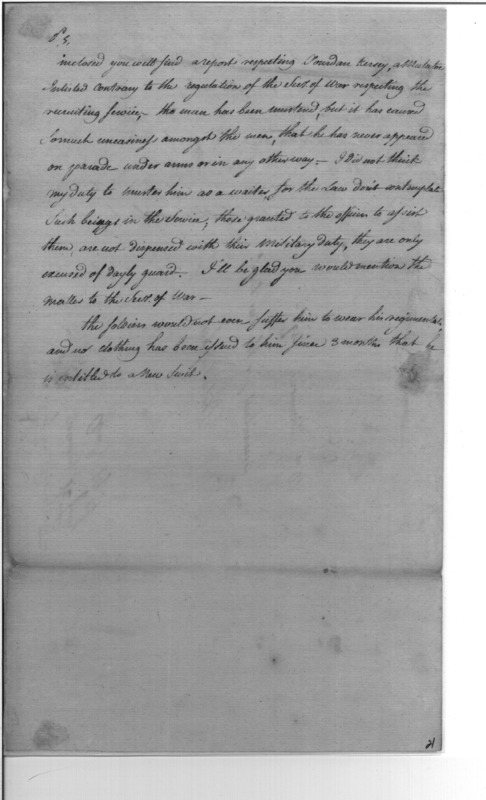 P.S.
inclosed you will find a report respecting Jourdan Kersey, a Mulatto
Enlisted contrary to the regulation of the Secy. of War respecting the
recruiting Service, the man has been mustered, but it has caused
So much uneasiness amongst the men, that he has never appeared
on parade under arms or in any other way. I did not think
my duty to muster him as a waiter, for the Law don't contemplate
Such beings in the Service; those granted to the officers to assist
them, are not dispensed with their Military duty, they are only
excused of dayly guard. I'll be glad you would mention the
matter to the Secy. of War —
the Soldiers would not even suffer him to wear his regimentals,
and no clothing has been issued to him since 3 months that he
is intitled to a New Suit.
21